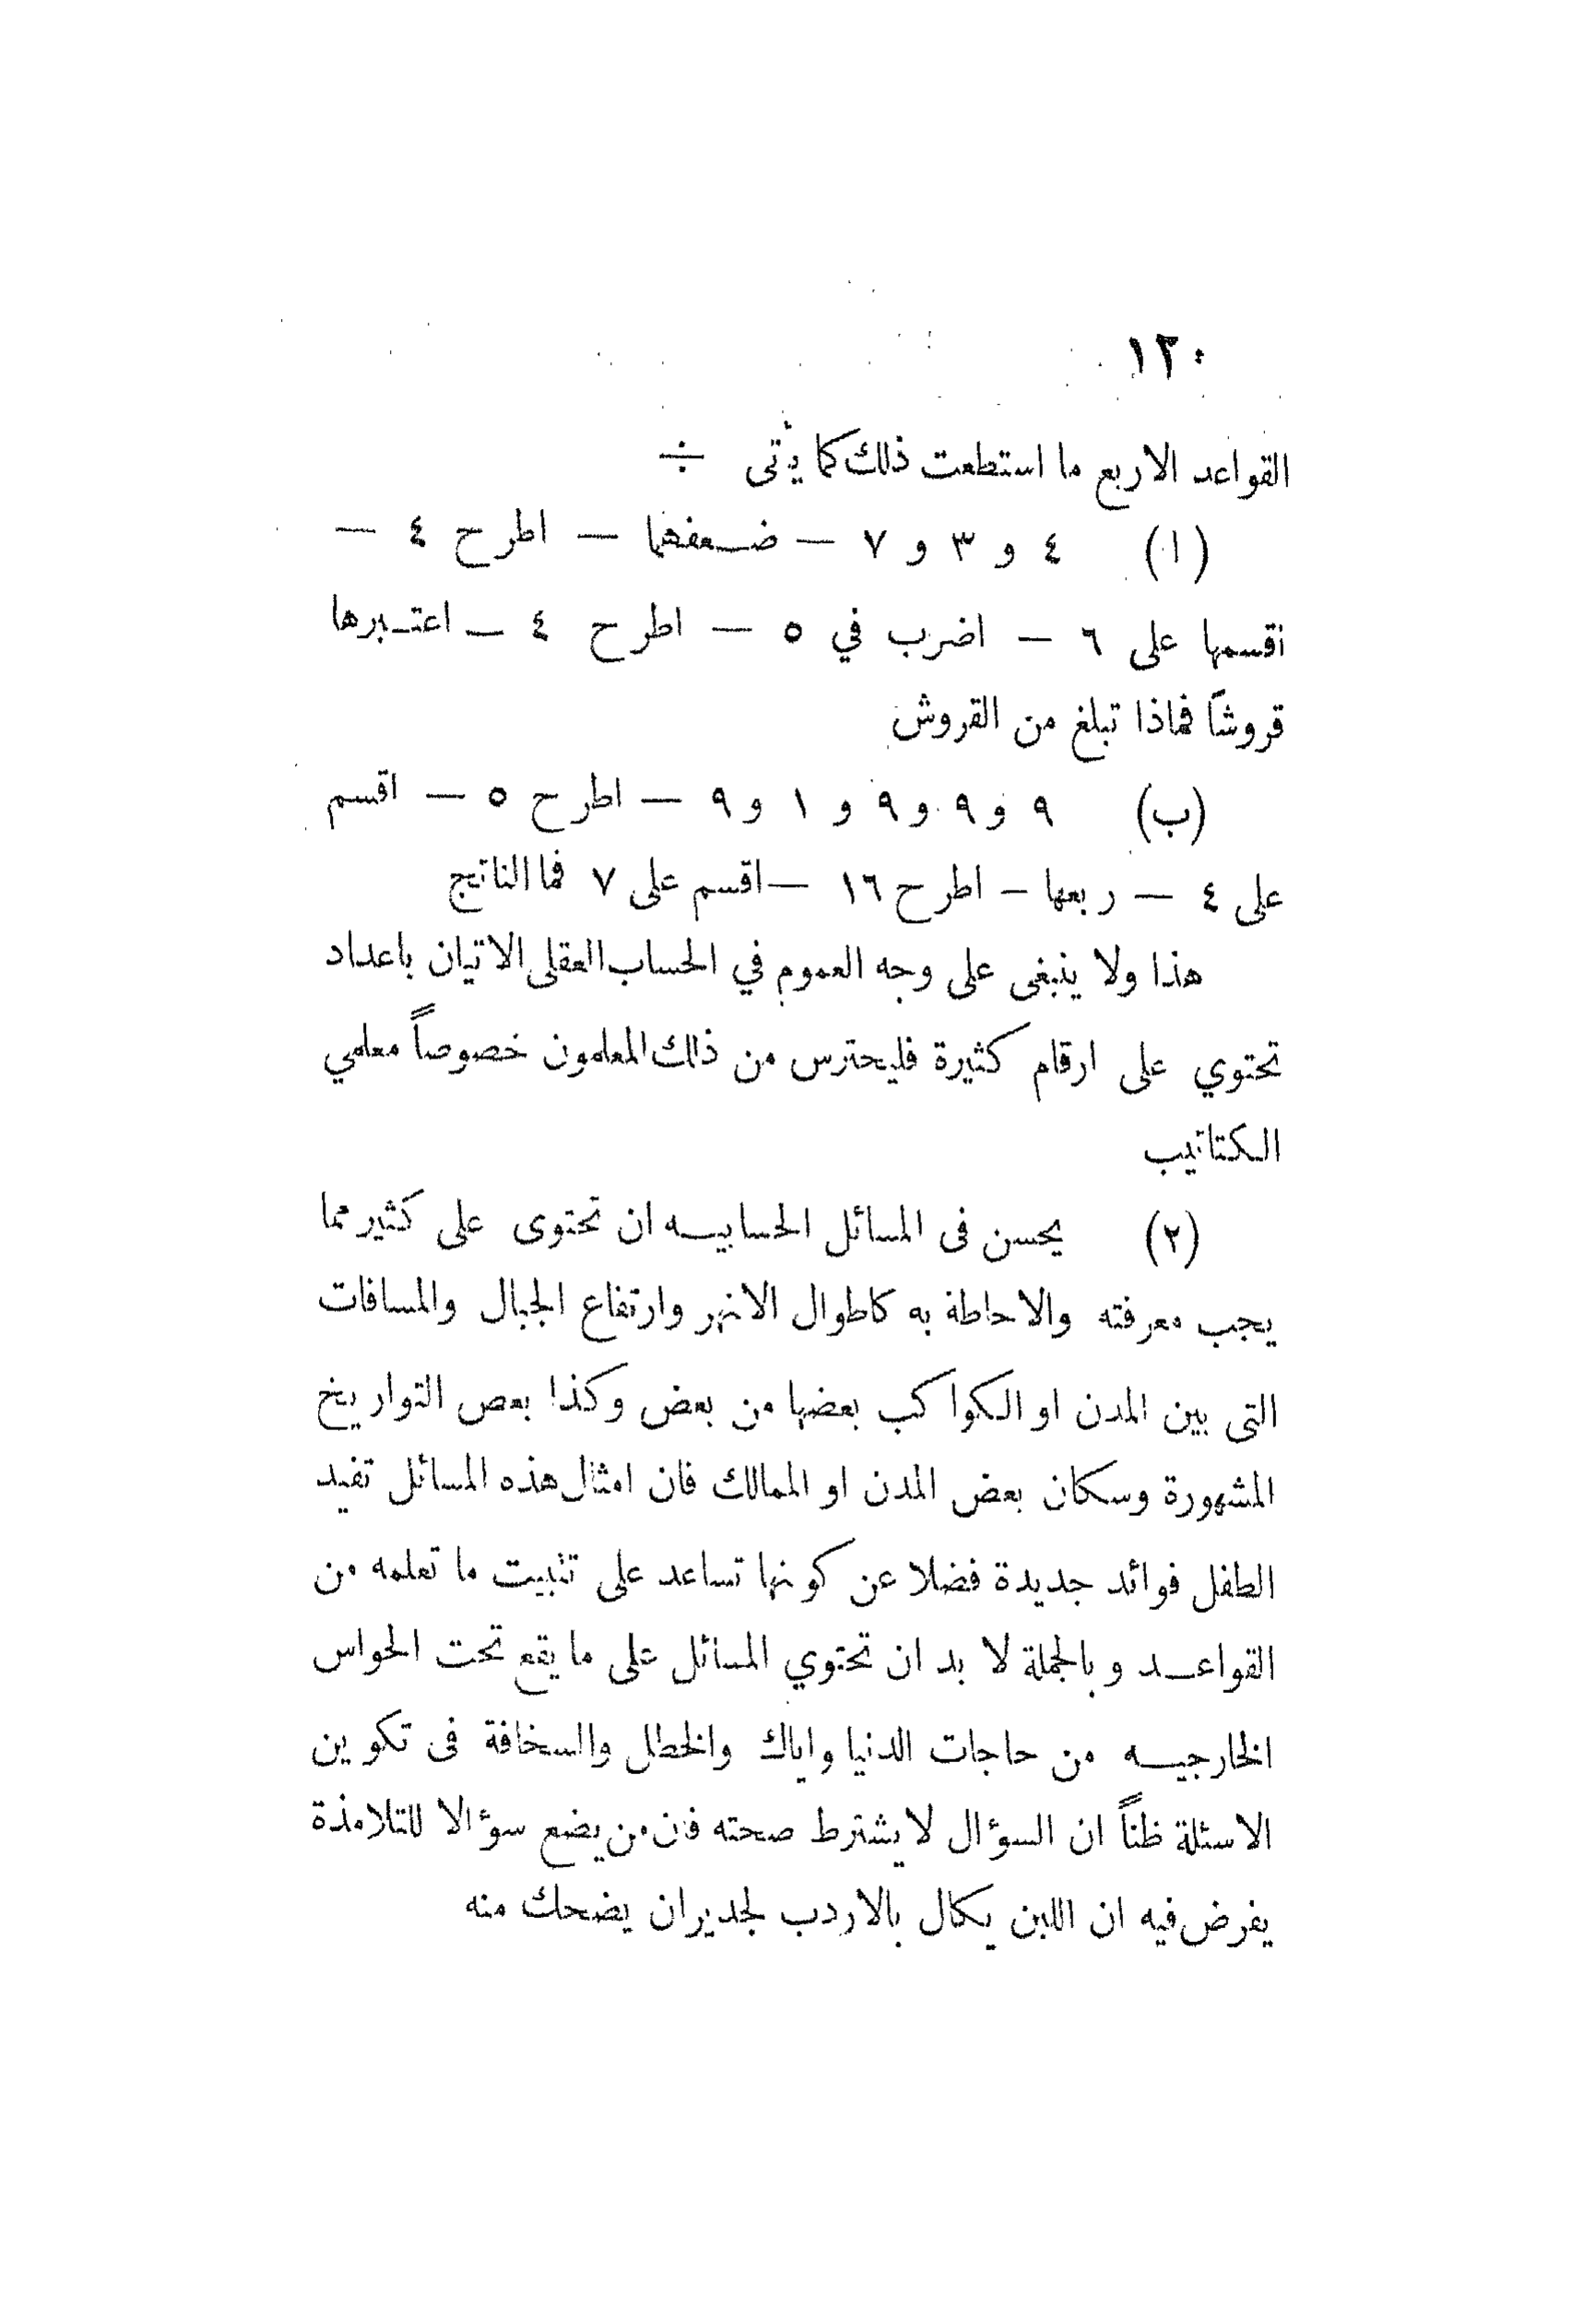 ١٢٠
القواعد الاربع ما استطعت ذلك كما يأتى ÷
(ا) ٤ و ٣ و ٧ — ضعفهما — اطرح ٤ —
اقسمها على ٦ — اضرب في ٥ — اطرح ٤ — اعتبرها
قروشاً فماذا تبلغ من القروش
(ب) ٩ و ٩ و ٩ و ١ و ٩ — اطرح ٥ — اقسم
على ٤ — ربعها — اطرح ١٦ — اقسم على ٧ فما الناتج
هذا ولا ينبغى على وجه العموم في الحساب العقلى الاتيان باعداد
تحتوي على ارقام كثيرة فليحترس من ذلك المعلمون خصوصاً معلمي
الكتاتيب
(٢) يحسن فى المسائل الحسابيه ان تحتوى على كثير مما
يجب معرفته والاحاطة به كاطوال الانهر وارتفاع الجبال والمسافات
التى بين المدن او الكواكب بعضها من بعض وكذا بعص التواريخ
المشهورة وسكان بعض المدن او الممالك فان امثال هذه المسائل تفيد
الطفل فوائد جديدة فضلا عن كونها تساعد على تثبيت ما تعلمه من
القواعد وبالجملة لا بد ان تحتوي المسائل على ما يقع تحت الحواس
الخارجيه من حاجات الدنيا واياك والخطل والسخافة فى تكوين
الاسئلة ظناً ان السؤال لا يشترط صحته فان من يضع سؤالا للتلامذة
يفرض فيه ان اللبن يكال بالاردب لجدير ان يضحك منه